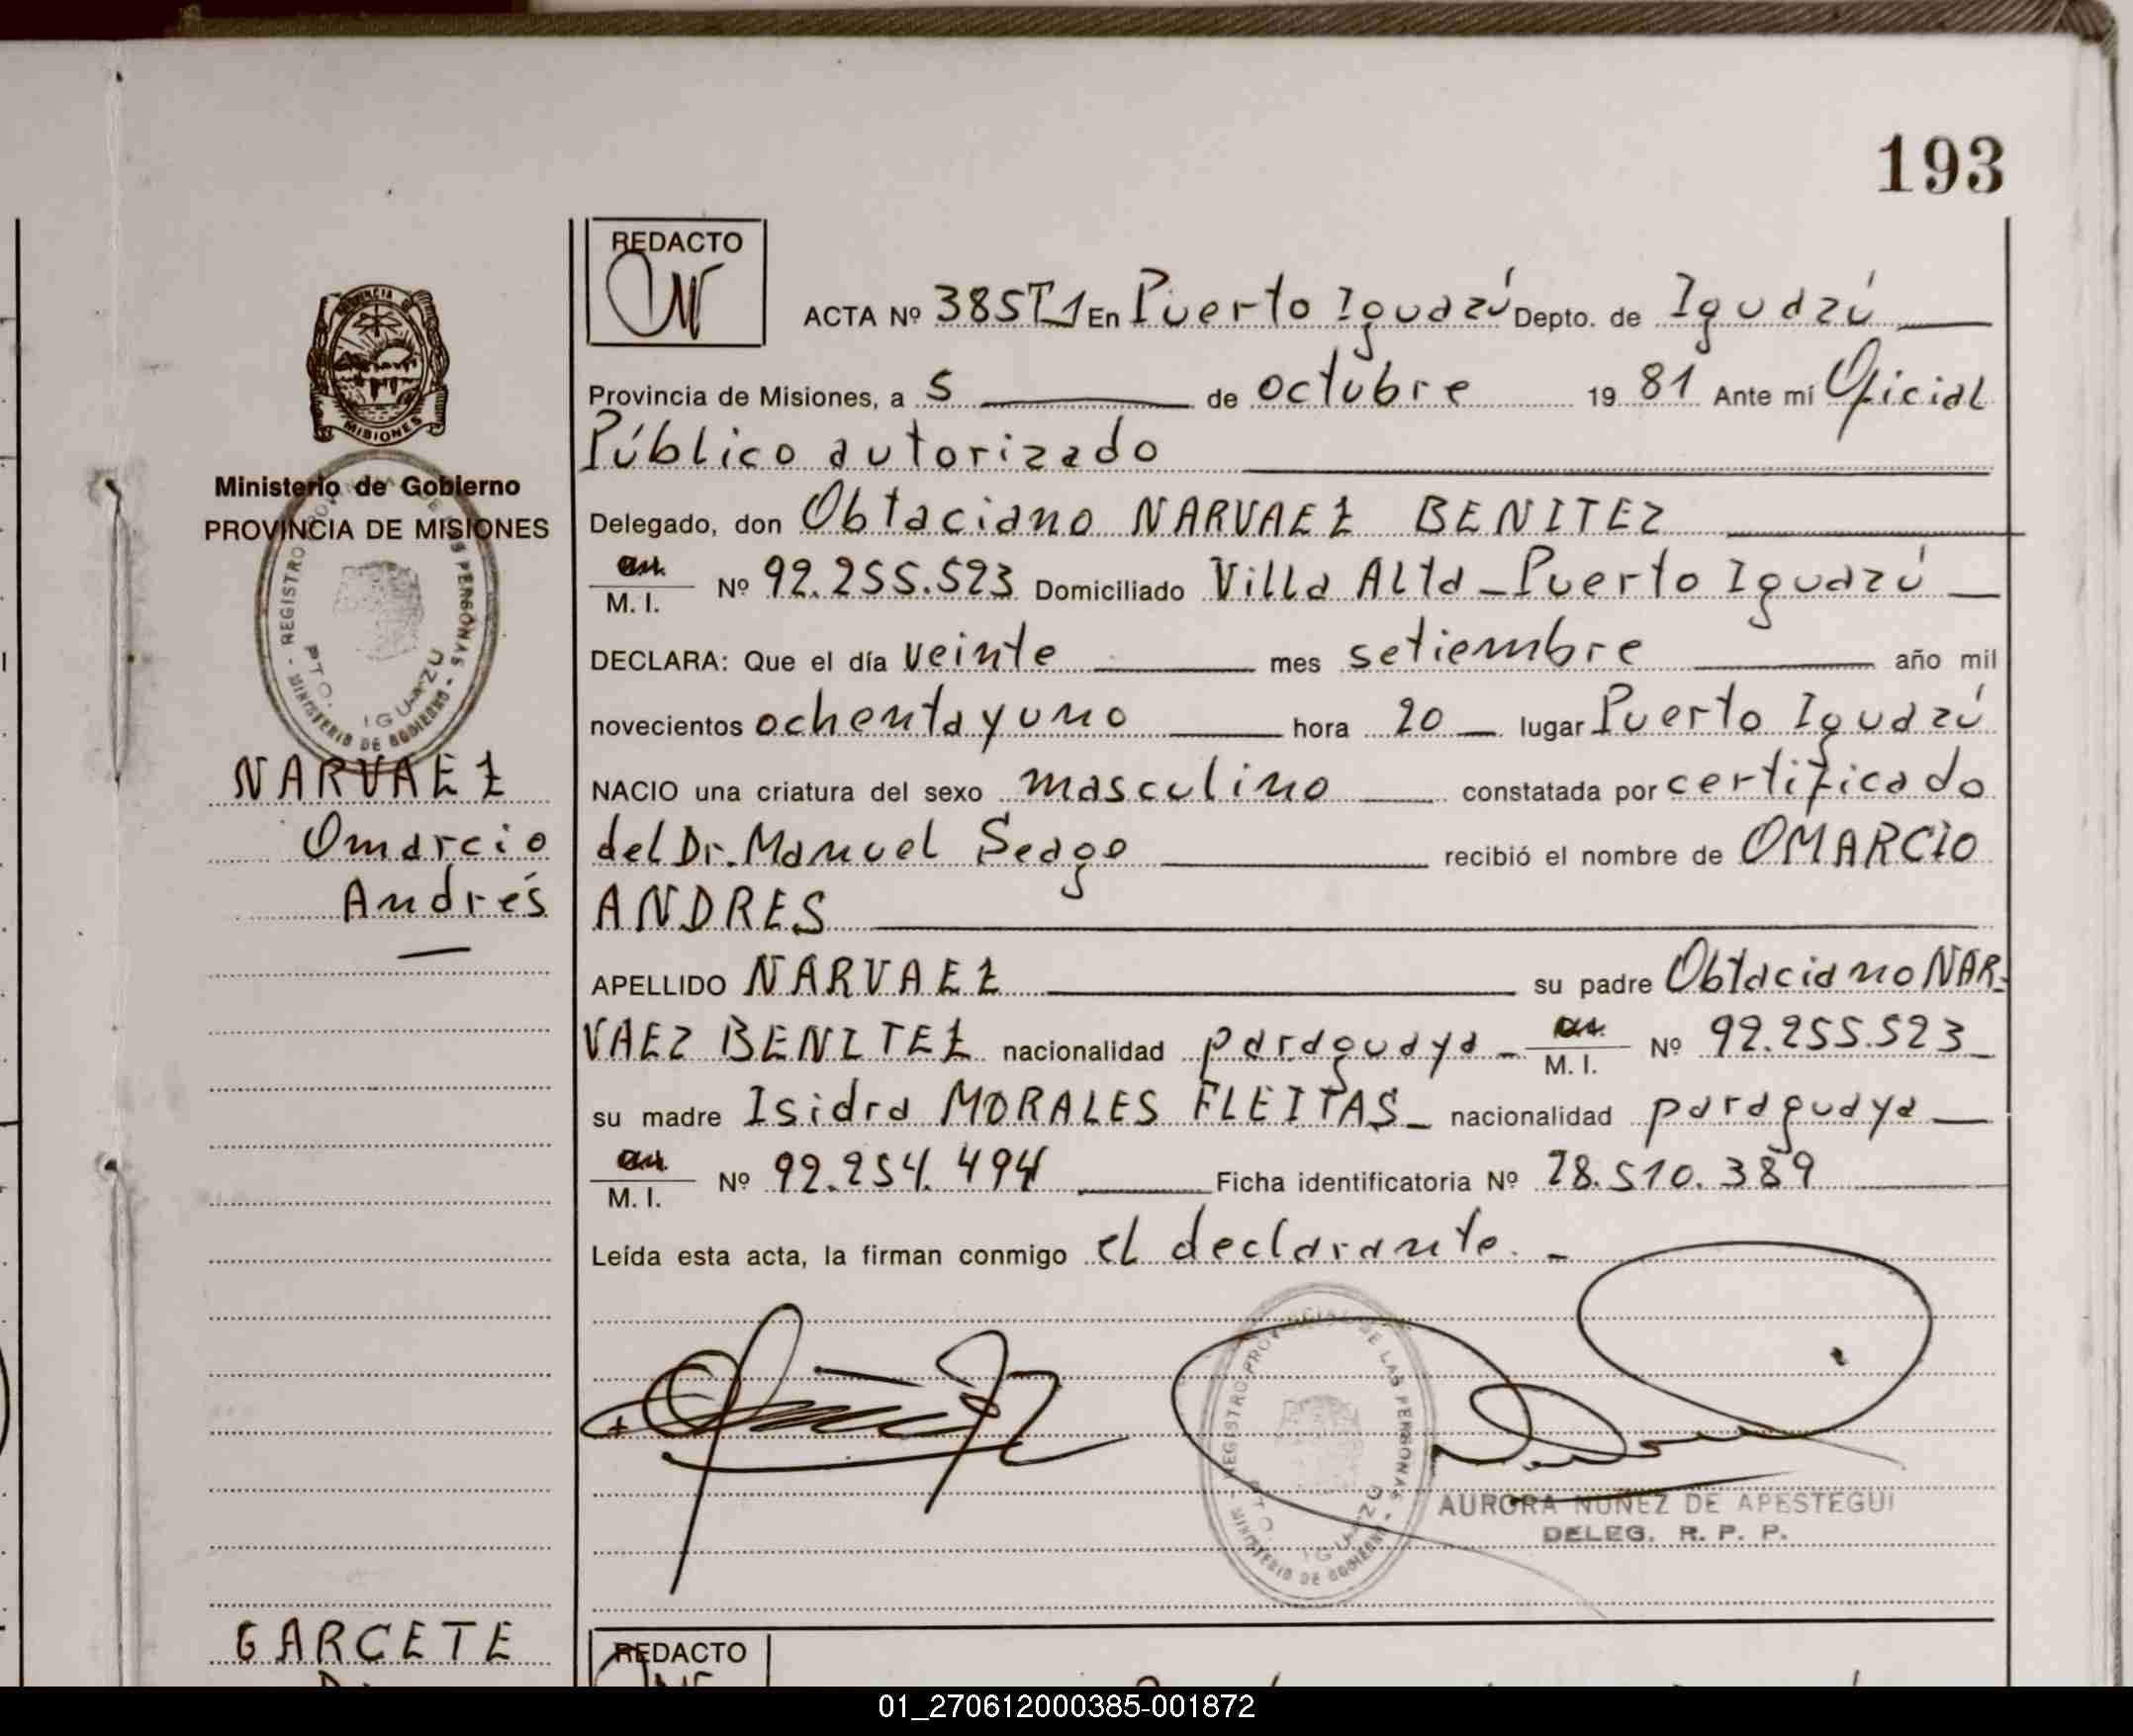 193
REDACTO
ACTA Nº 385T1 En Puerto Iguazú Depto. de Iguazú
Provincia de Misiones, a 5 de octubre 19 81 Ante mí Oficial
Público autorizado
Delegado, don Obtaciano NARVAEZ BENITEZ
M. I. Nº 92.255.523 Domiciliado Villa Alta - Puerto Iguazú
DECLARA: Que el día veinte mes setiembre año mil
novecientos ochenta y uno hora 20 lugar Puerto Iguazú
NACIO una criatura del sexo masculino constatada por certificado
del Dr. Manuel Seago recibió el nombre de OMARCIO
ANDRES
APELLIDO NARVAEZ su padre Obtaciano NAR-
VAEZ BENITEZ nacionalidad paraguaya - M. I. Nº 92.255.523
su madre Isidra MORALES FLEITAS - nacionalidad paraguaya
M. I. Nº 92.254.494 Ficha identificatoria Nº 28.510.389
Leída esta acta, la firman conmigo el declarante. -
AURORA NUÑEZ DE APESTEGUI
DELEG. R. P. P.
REGISTRO PROVINCIAL DE LAS PERSONAS - MINISTERIO DE GOBIERNO -
PTO. IGUAZU
PROVINCIA DE MISIONES
Ministerio de Gobierno
PROVINCIA DE MISIONES
REGISTRO PROVINCIAL DE LAS PERSONAS - MINISTERIO DE GOBIERNO -
PTO. IGUAZU
NARVAEZ
Omarcio
Andrés
GARCETE
REDACTO
01_270612000385-001872